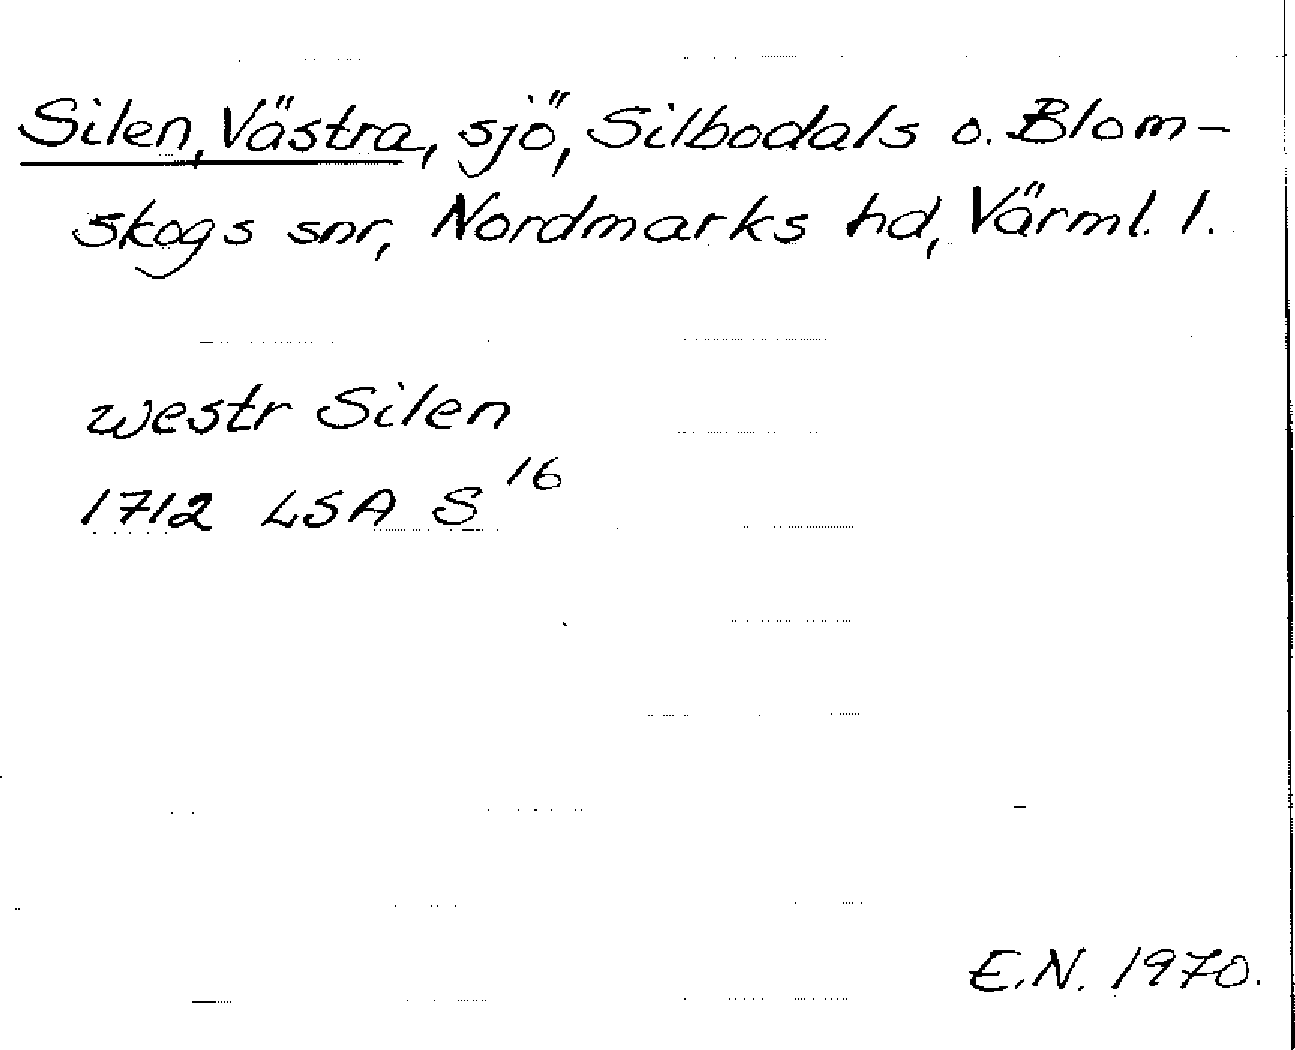 Silen, Västra, sjö, Silbodals o. Blom-
skogs snr, Nordmarks hd, Värml. l.
westr Silen
1712 LSA S 16
E.N. 1970.